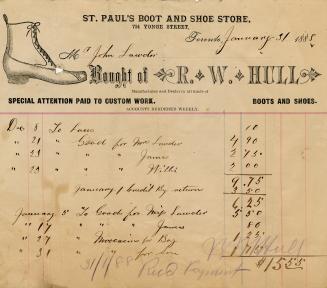 ST. PAUL'S BOOT AND SHOE STORE,
734 YONGE STREET,
Toronto, January 31 1888
Mr John Lawder
Bought of R. W. HULL
Manufacturer and Dealer in all kinds of
SPECIAL ATTENTION PAID TO CUSTOM WORK. BOOTS AND SHOES.
ACCOUNTS RENDERED WEEKLY.
Dec 8 To Laces 10
" 21 " Goods for Mrs Lawder 4 90
" 23 " " " James 2 75
" 23 " " " Willie 2 00
9 75
January 1 Credit By return 3 50
6 25
January 5 To Goods for Miss Lawder 5 50
" 17 " " " James 80
" 27 " Moccasins for Boy 1 25
" 31 " " for son 1 75
$15.55
31/1/88 Recd Payment
R W Hull